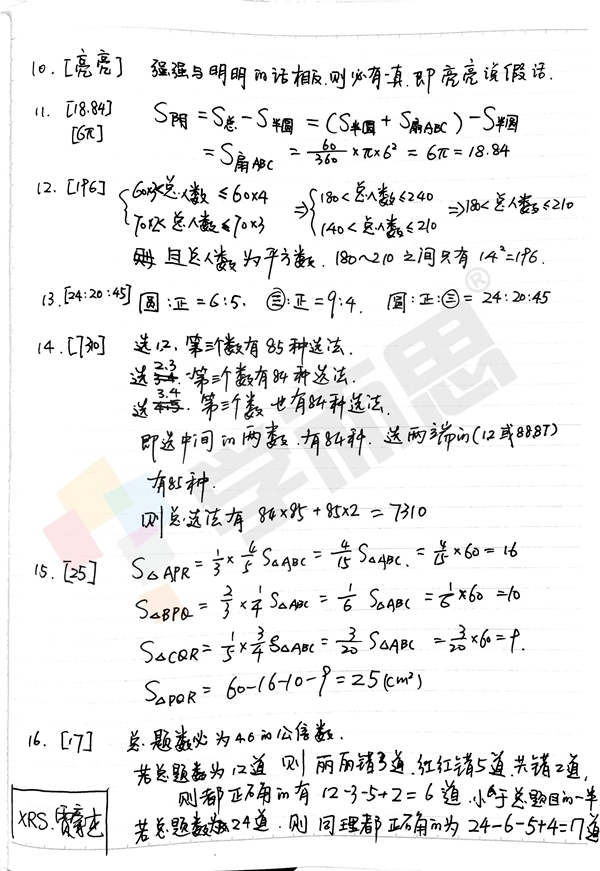 10. [亮亮] 强强与明明的话相反,则必有一真,即亮亮说假话.
11. [18.84] S阴 = S总 - S半圆 = (S半圆 + S扇ABC) - S半圆
[6π] = S扇ABC = 60/360 × π × 6² = 6π = 18.84
12. [196] { 60×3<总人数 ≤ 60×4 ⇒ { 180<总人数≤240 ⇒ 180<总人数≤210
70×2<总人数≤70×3 140<总人数≤210
且总人数为平方数. 180~210之间只有 14²=196.
13. [24:20:45] 圆:正=6:5, ㊂:正=9:4. 圆:正:㊂ = 24:20:45
14. [7310] 选1,2, 第三个数有85种选法.
选2.3 第三个数有84种选法.
选3.4 第三个数也有84种选法.
即选中间的两数,有84种. 选两端的(12或8887)
有85种.
则总选法有 84×85+85×2 = 7310
15. [25] S△APR = 1/3 × 4/5 S△ABC = 4/15 S△ABC = 4/15 × 60 = 16
S△BPQ = 2/3 × 1/4 S△ABC = 1/6 S△ABC = 1/6 × 60 = 10
S△CQR = 1/5 × 3/4 S△ABC = 3/20 S△ABC = 3/20 × 60 = 9.
S△PQR = 60-16-10-9 = 25 (cm²)
16. [17] 总题数必为4、6的公倍数.
若总题数为12道 则丽丽错3道,红红错5道,共错2道,
则都正确的有 12-3-5+2 = 6道, 小于总题目的一半
XRS.
若总题数为24道, 则同理都正确的为 24-6-5+4=17道
学而思
®